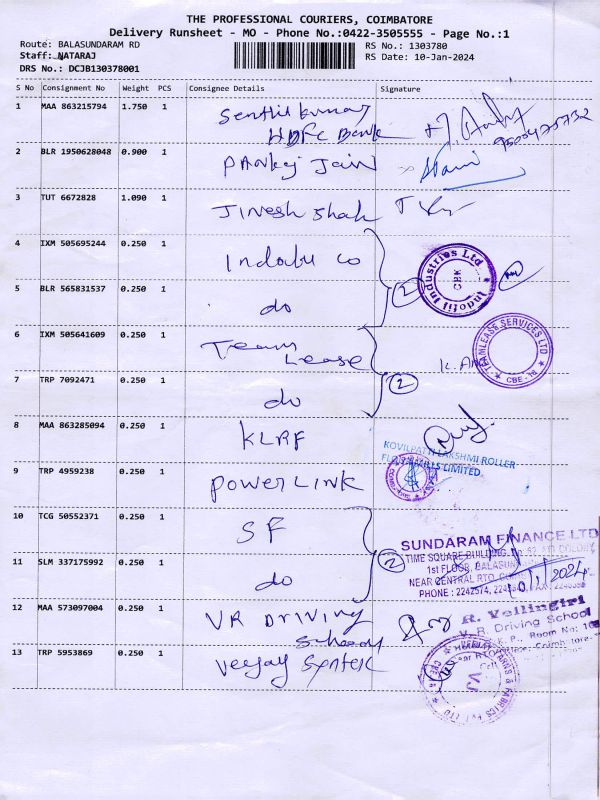 THE PROFESSIONAL COURIERS, COIMBATORE
Delivery Runsheet - MO - Phone No.:0422-3505555 - Page No.:1
Route: BALASUNDARAM RD
RS No.: 1303780
Staff: NATARAJ
RS Date: 10-Jan-2024
DRS No.: DCJB130378001
S No Consignment No Weight PCS Consignee Details Signature
1 MAA 863215794 1.750 1 Senthil kumar
HDFC Bank
2 BLR 1950628048 0.900 1 Pankej Jain
3 TUT 6672828 1.090 1 Jinesh shah
4 IXM 505695244 0.250 1 Indofil co
Indofil Industries Ltd
CBK
5 BLR 565831537 0.250 1 do
2
6 IXM 505641609 0.250 1 Team
Lease
TEAMLEASE SERVICES LTD
CBE - 18
7 TRP 7092471 0.250 1 do
2
8 MAA 863285094 0.250 1 KLRF
KOVILPATTI LAKSHMI ROLLER
FLOUR MILLS LIMITED
9 TRP 4959238 0.250 1 Power Link
10 TCG 50552371 0.250 1 SF
SUNDARAM FINANCE LTD
TIME SQUARE BUILDING
1st FLOOR, BALASUN
NEAR CENTRAL RTO,
PHONE : 2242574,
11 SLM 337175992 0.250 1 do
2
10/1/2024
12 MAA 573097004 0.250 1 VR Driving
School
R. Vellingiri
V. R. Driving School
Room No:
Coimbatore
13 TRP 5953869 0.250 1 Veejay Syntex
VJ